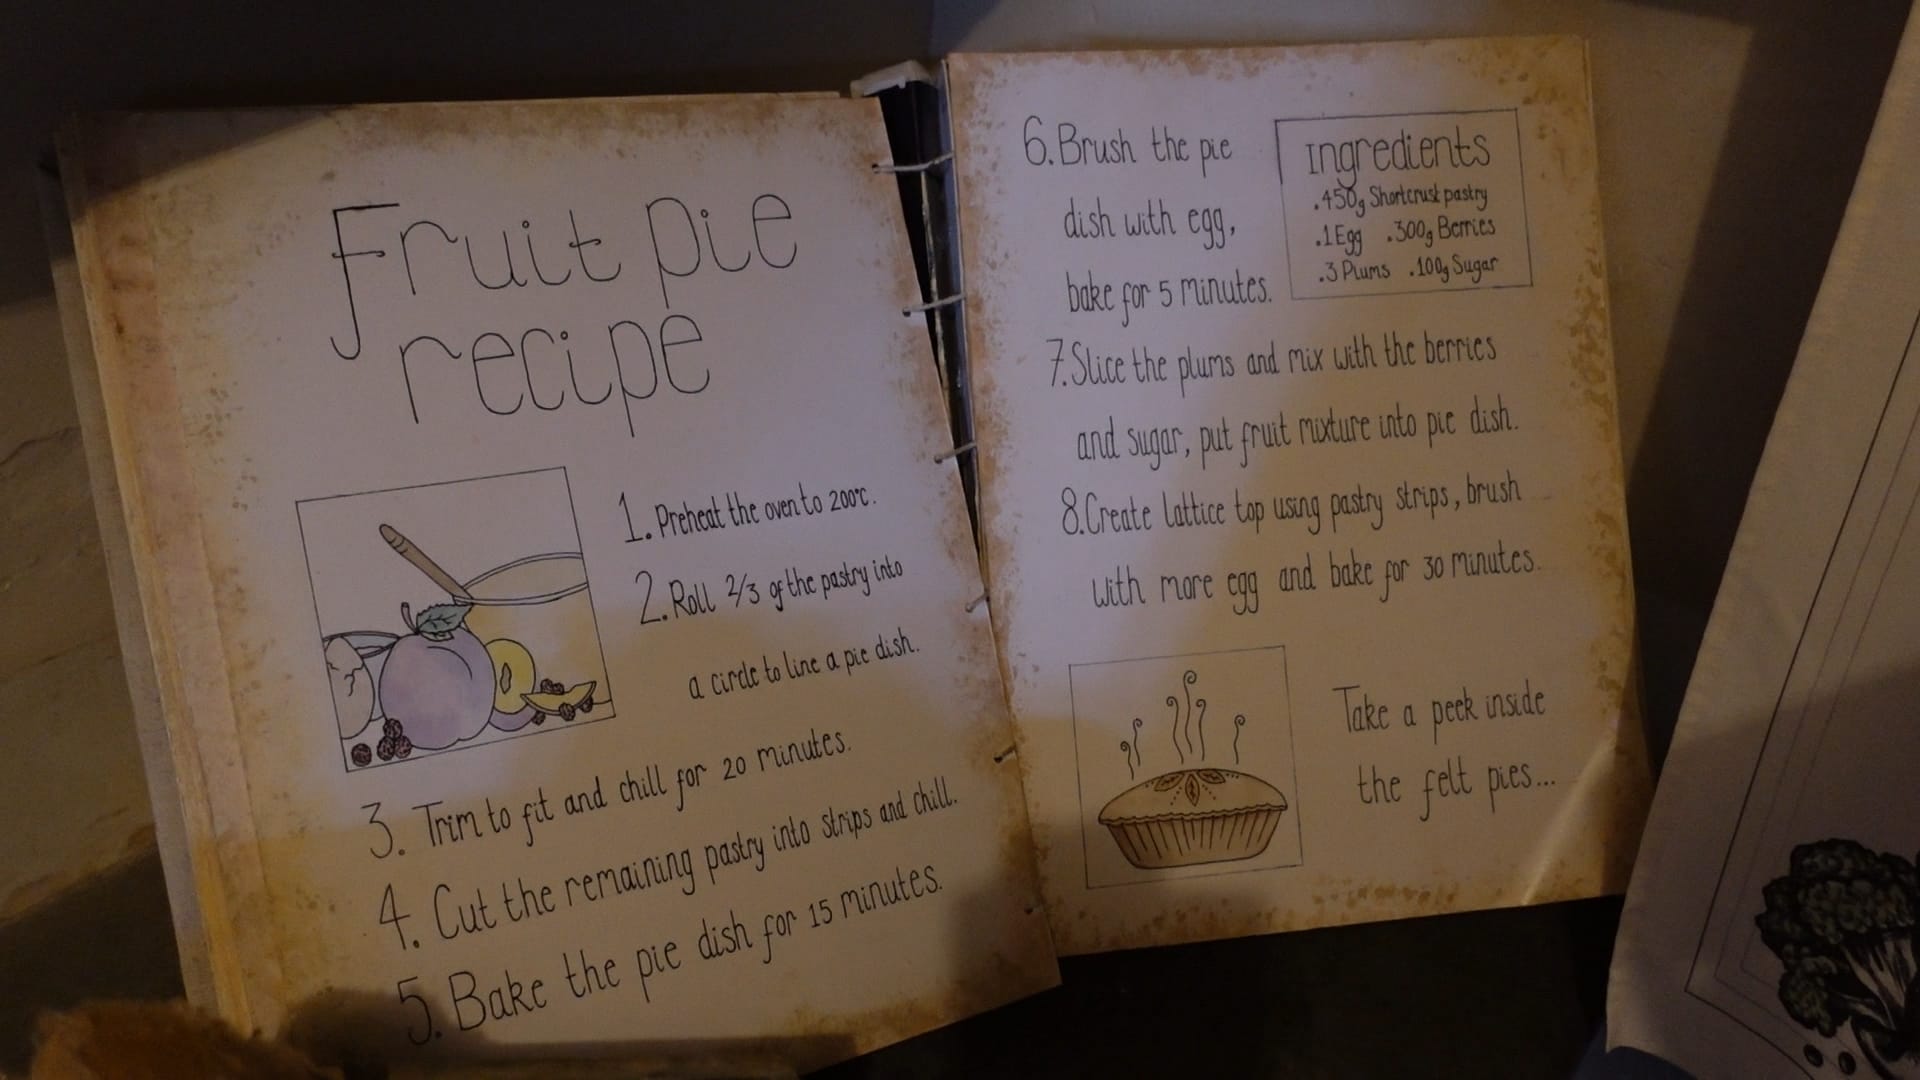 Fruit pie
recipe
1. Preheat the oven to 200°c.
2. Roll 2/3 of the pastry into
a circle to line a pie dish.
3. Trim to fit and chill for 20 minutes.
4. Cut the remaining pastry into strips and chill.
5. Bake the pie dish for 15 minutes.
6. Brush the pie
dish with egg,
bake for 5 minutes.
Ingredients
.450g Shortcrust pastry
.1 Egg .300g Berries
.3 Plums .100g Sugar
7. Slice the plums and mix with the berries
and sugar, put fruit mixture into pie dish.
8. Create lattice top using pastry strips, brush
with more egg and bake for 30 minutes.
Take a peek inside
the felt pies...